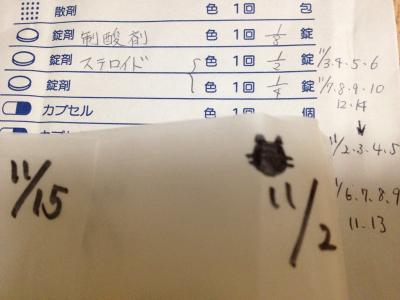 散剤 色 1回 包
錠剤 制酸剤 色 1回 1/8 錠
錠剤 ステロイド 色 1回 1/2 錠 11/3.4.5.6
錠剤 色 1回 1/4 錠 11/7.8.9.10
12.14
カプセル 色 1回 個
11/2.3.4.5
11/6.7.8.9
11.13
11/15
11/2